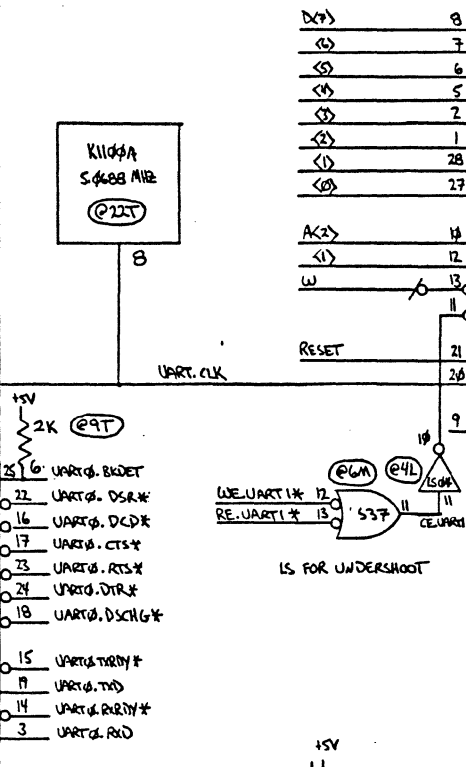 D<7> 8
<6> 7
<5> 6
<4> 5
<3> 2
<2> 1
<1> 28
<0> 27
K1100A
5.0688 MHz
@22T
8
A<2> 10
<1> 12
W 13
11
RESET 21
UART.CLK 20
+5V
2K @9T
9
10
25 6 UART0.BKDET
22 UART0.DSR*
16 UART0.DCD*
17 UART0.CTS*
23 UART0.RTS*
24 UART0.DTR*
18 UART0.DSCHG*
15 UART0.TXRDY*
19 UART0.TXD
14 UART0.RXRDY*
3 UART0.RXD
@6M @4L
WE.UART1* 12
RE.UART1* 13
'S37 11
LS04
11
CE.UART1
LS FOR UNDERSHOOT
+5V